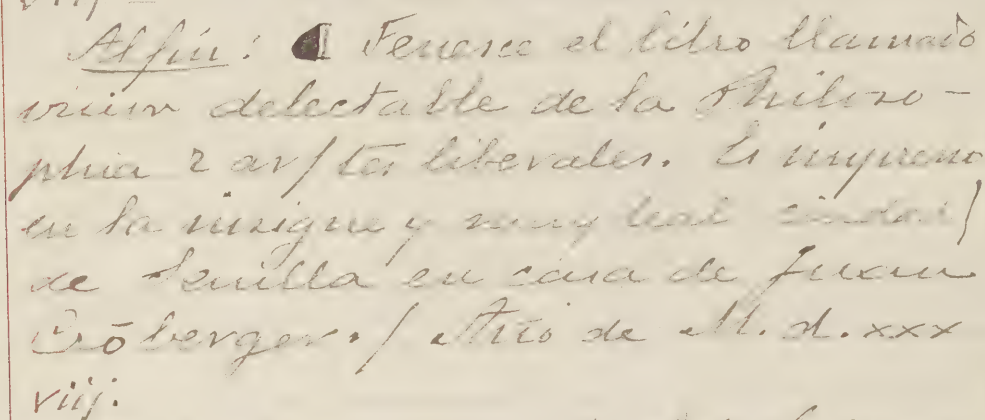 Al fin: ¶ Fenesce el libro llamado
vision delectable de la Philoso-
phia ⁊ ar/tes liberales. Es impresso
en la insigne y muy leal ciudad/
de Seuilla en casa de Juan
Crōberger./ Año de M.d.xxx
viij.